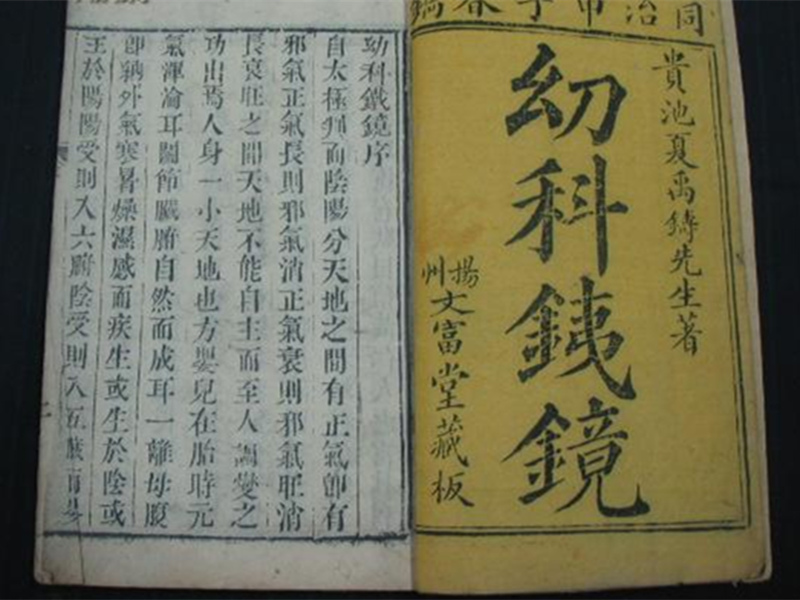 同治甲子春鐫
貴池夏禹鑄先生著
幼科銕鏡
揚州文富堂藏板
幼科鐵鏡序
自太極判而陰陽分天地之間有正氣卽有
邪氣正氣長則邪氣消正氣衰則邪氣旺消
長衰旺之間天地不能自主而至人調燮之
功出焉人身一小天地也方嬰兒在胎時元
氣渾淪耳關節臟腑自然而成耳一離母腹
卽納外氣寒暑燥濕感而疾生或生於陰或
王於陽陽受則入六腑陰受則入五臟